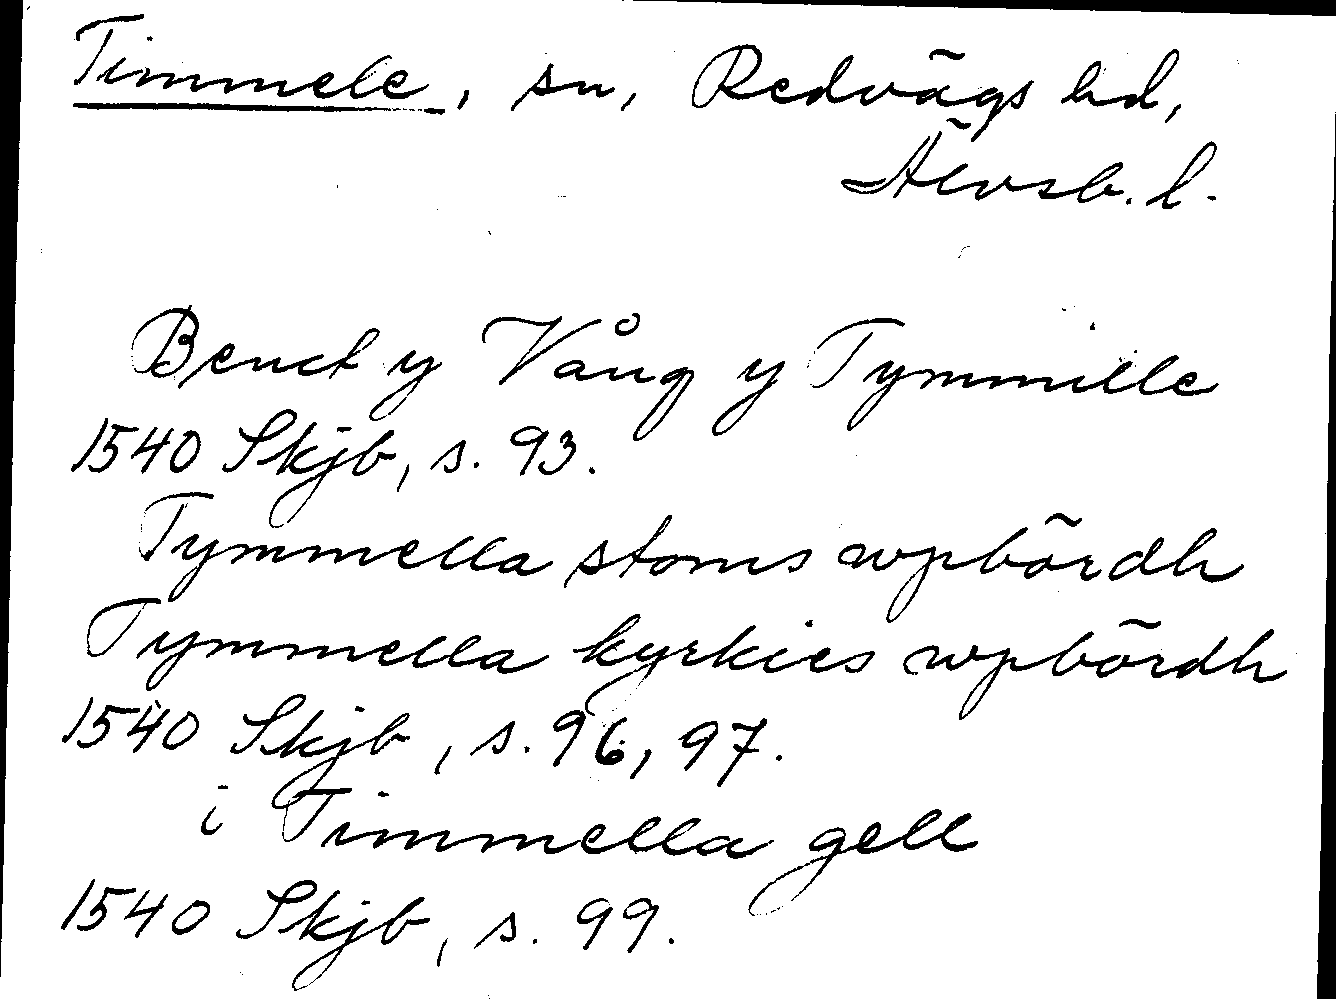 Timmele, sn, Redvägs hd,
Älvsb. l.
Benct y Vång y Tymmille
1540 Skjb, s. 93.
Tymmella stoms wpbördh
Tymmella kyrkies wpbördh
1540 Skjb, s. 96, 97.
i Timmella gell
1540 Skjb, s. 99.